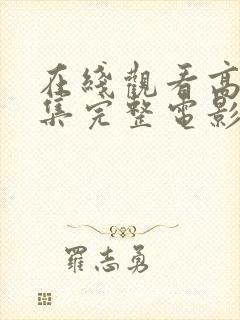 在綫觀看高
集完整電影
羅志勇